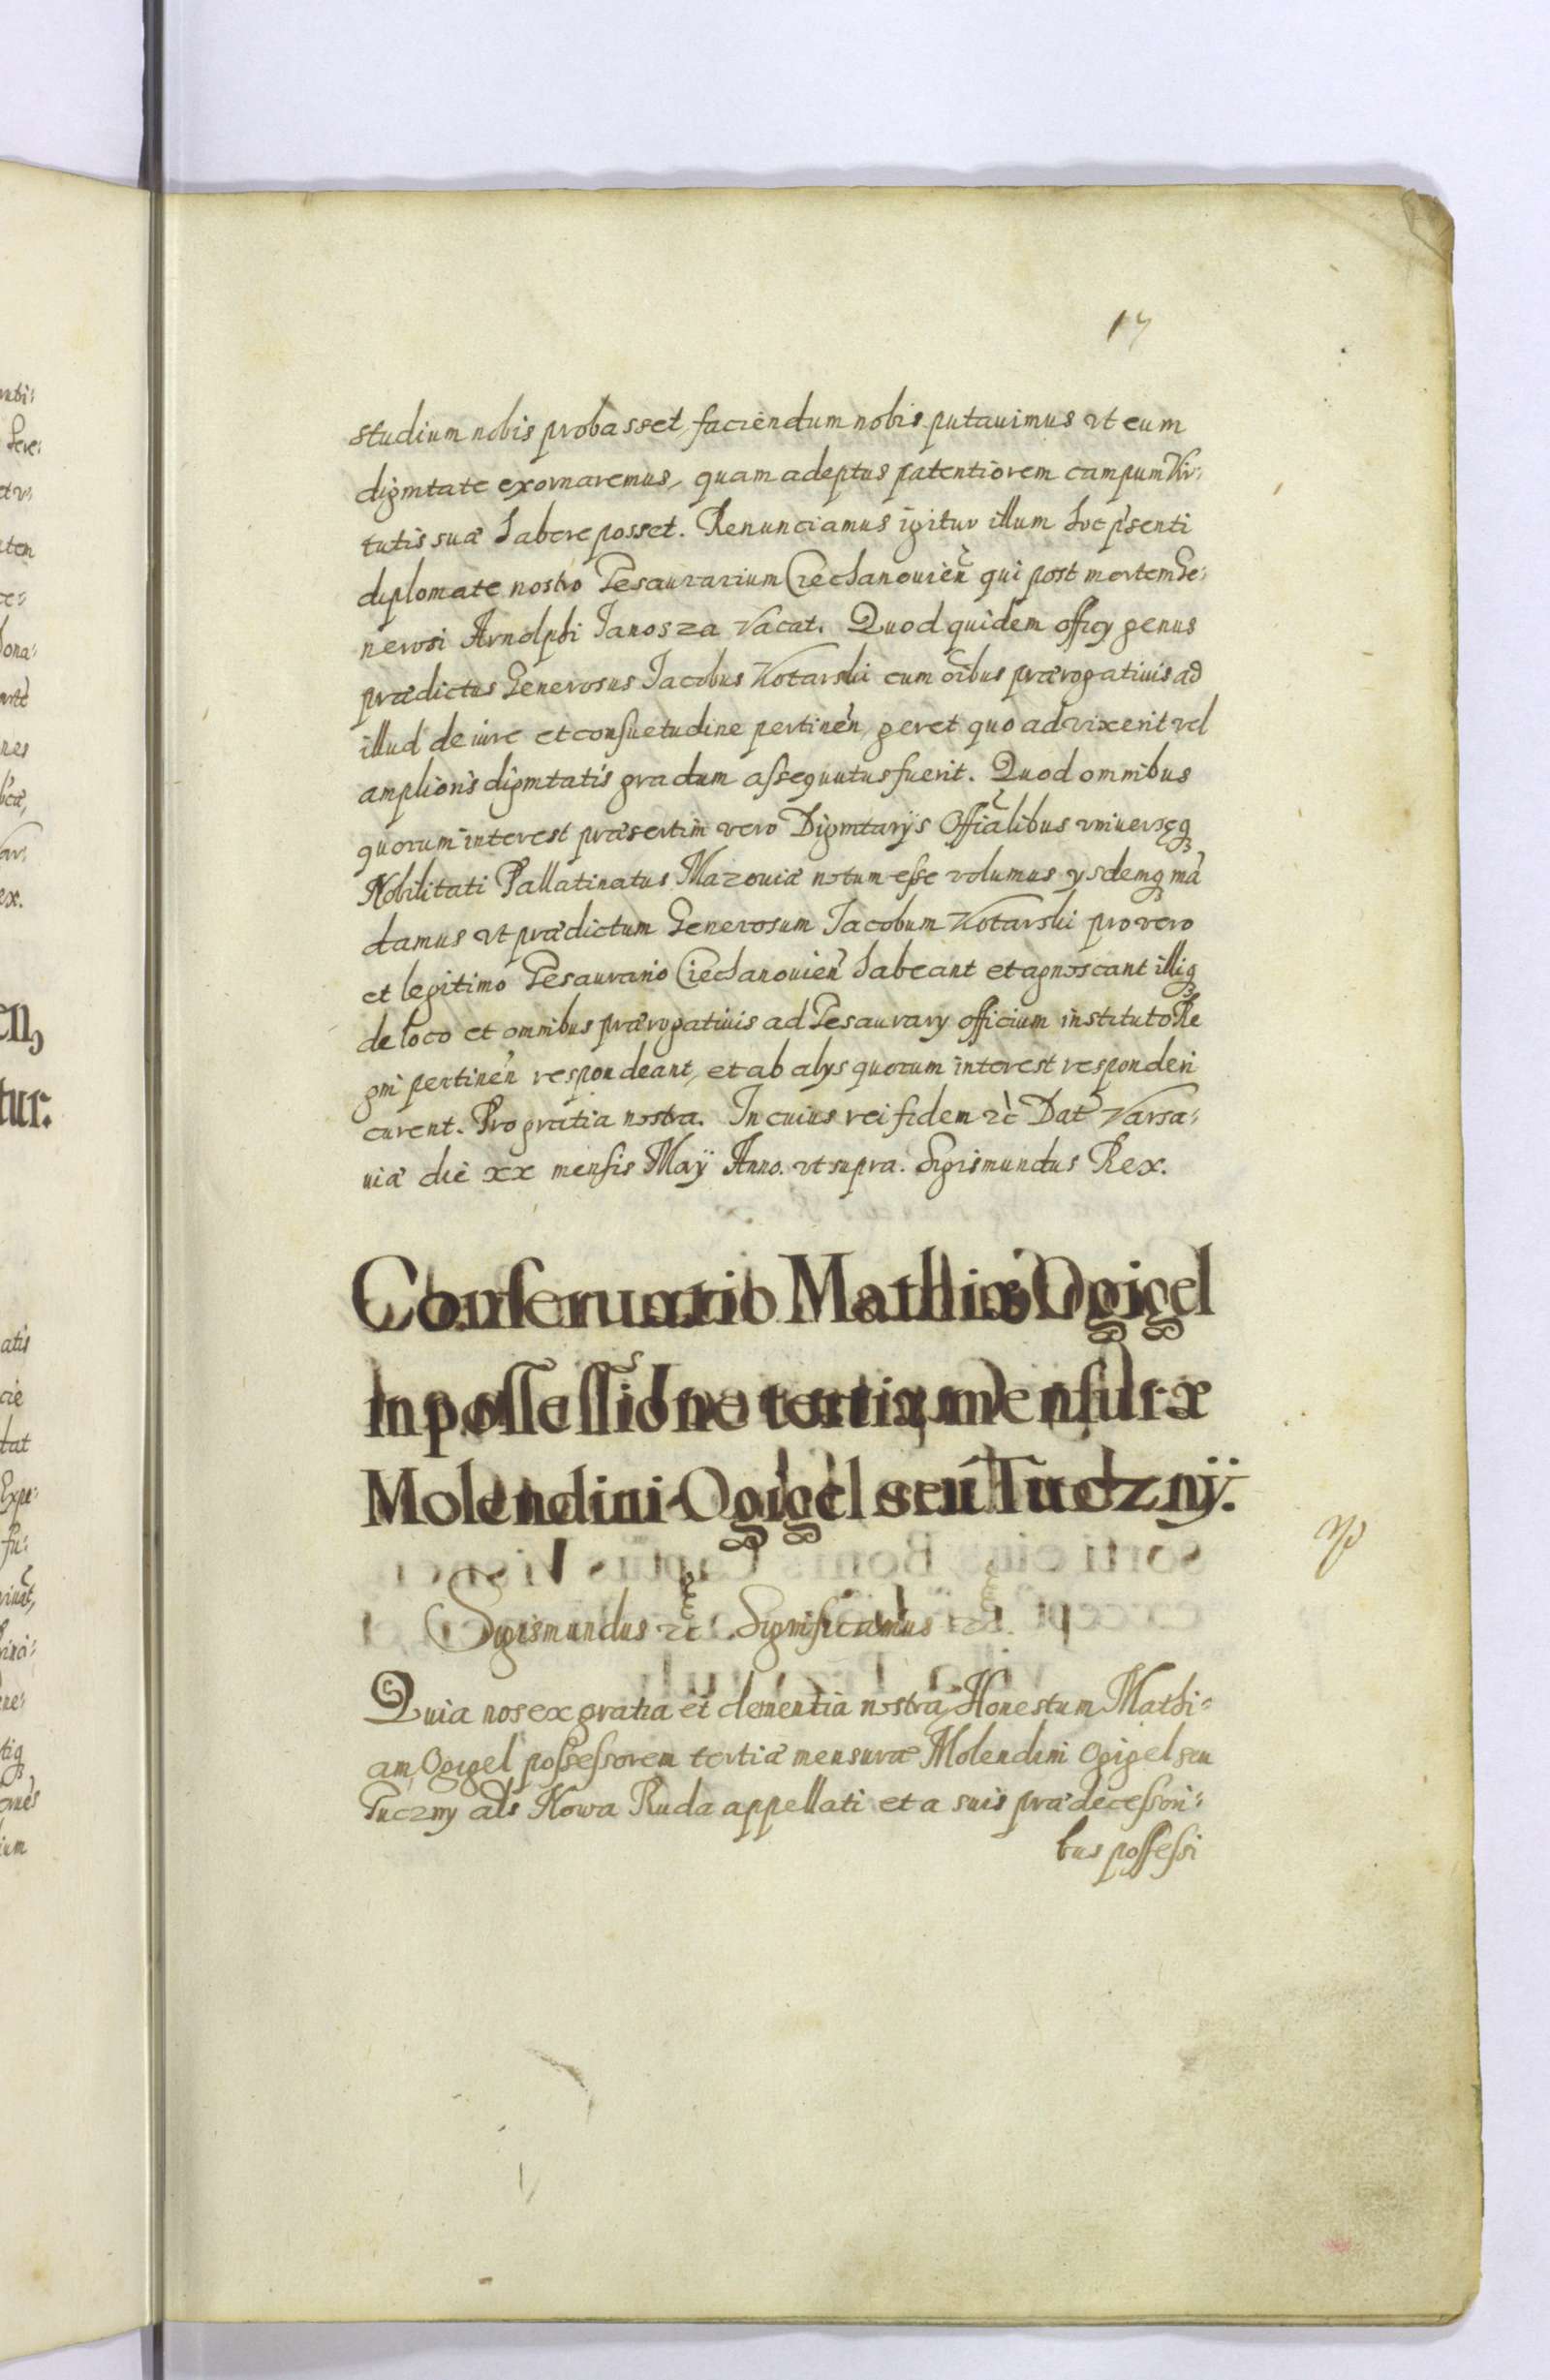 17
studium nobis probasset, faciendum nobis putauimus vt eum
dignitate exornaremus, quam adeptus patentiorem campum Vir:
tutis suæ habere posset. Renunciamus igitur illum hoc p̃senti
diplomate nostro Tesaurarium Ciechanouień qui post mortem Ge:
nerosi Arnolphi Janosza vacat. Quod quidem officÿ genus
prædictus Generosus Jacobus Kotarski cum oĩbus prærogatiuis ad
illud de iure et consuetudine pertineñ, geret quo ad vixerit vel
amplioris dignitatis gradum assequutus fuerit. Quod omnibus
quorum interest præsertim vero Dignitarÿs Offĩalibus vniuersęq3
Nobilitati Pallatinatus Mazouiæ notum esse volumus ysdemq3 mã
damus vt prædictum Generosum Jacobum Kotarski pro vero
et legitimo Tesaurario Ciechanouień habeant et agnoscant illiq3
de loco et omnibus prærogatiuis ad Tesaurary officium instituto Re
gni pertineñ respondeant, et ab alys quorum interest responderi
curent. Pro gratia nostra. In cuius rei fidem &c̀ Dat̃ Varsa:
uiæ die xx mensis Maÿ Anno vt supra. Sigismundus Rex.
Conseruatio Mathiæ Ogigel
in possessione tertiæ mensuræ
Molendini Ogigel seu Tuczny.
Sigismundus &c Significamus &c.
Quia nos ex gratia et clementia nostra, Honestum Mathi:
am Ogigel possessorem tertiæ mensuræ Molendini Ogigel seu
Tuczny als Nowa Ruda appellati et a suis prædecessori:
bus possessi